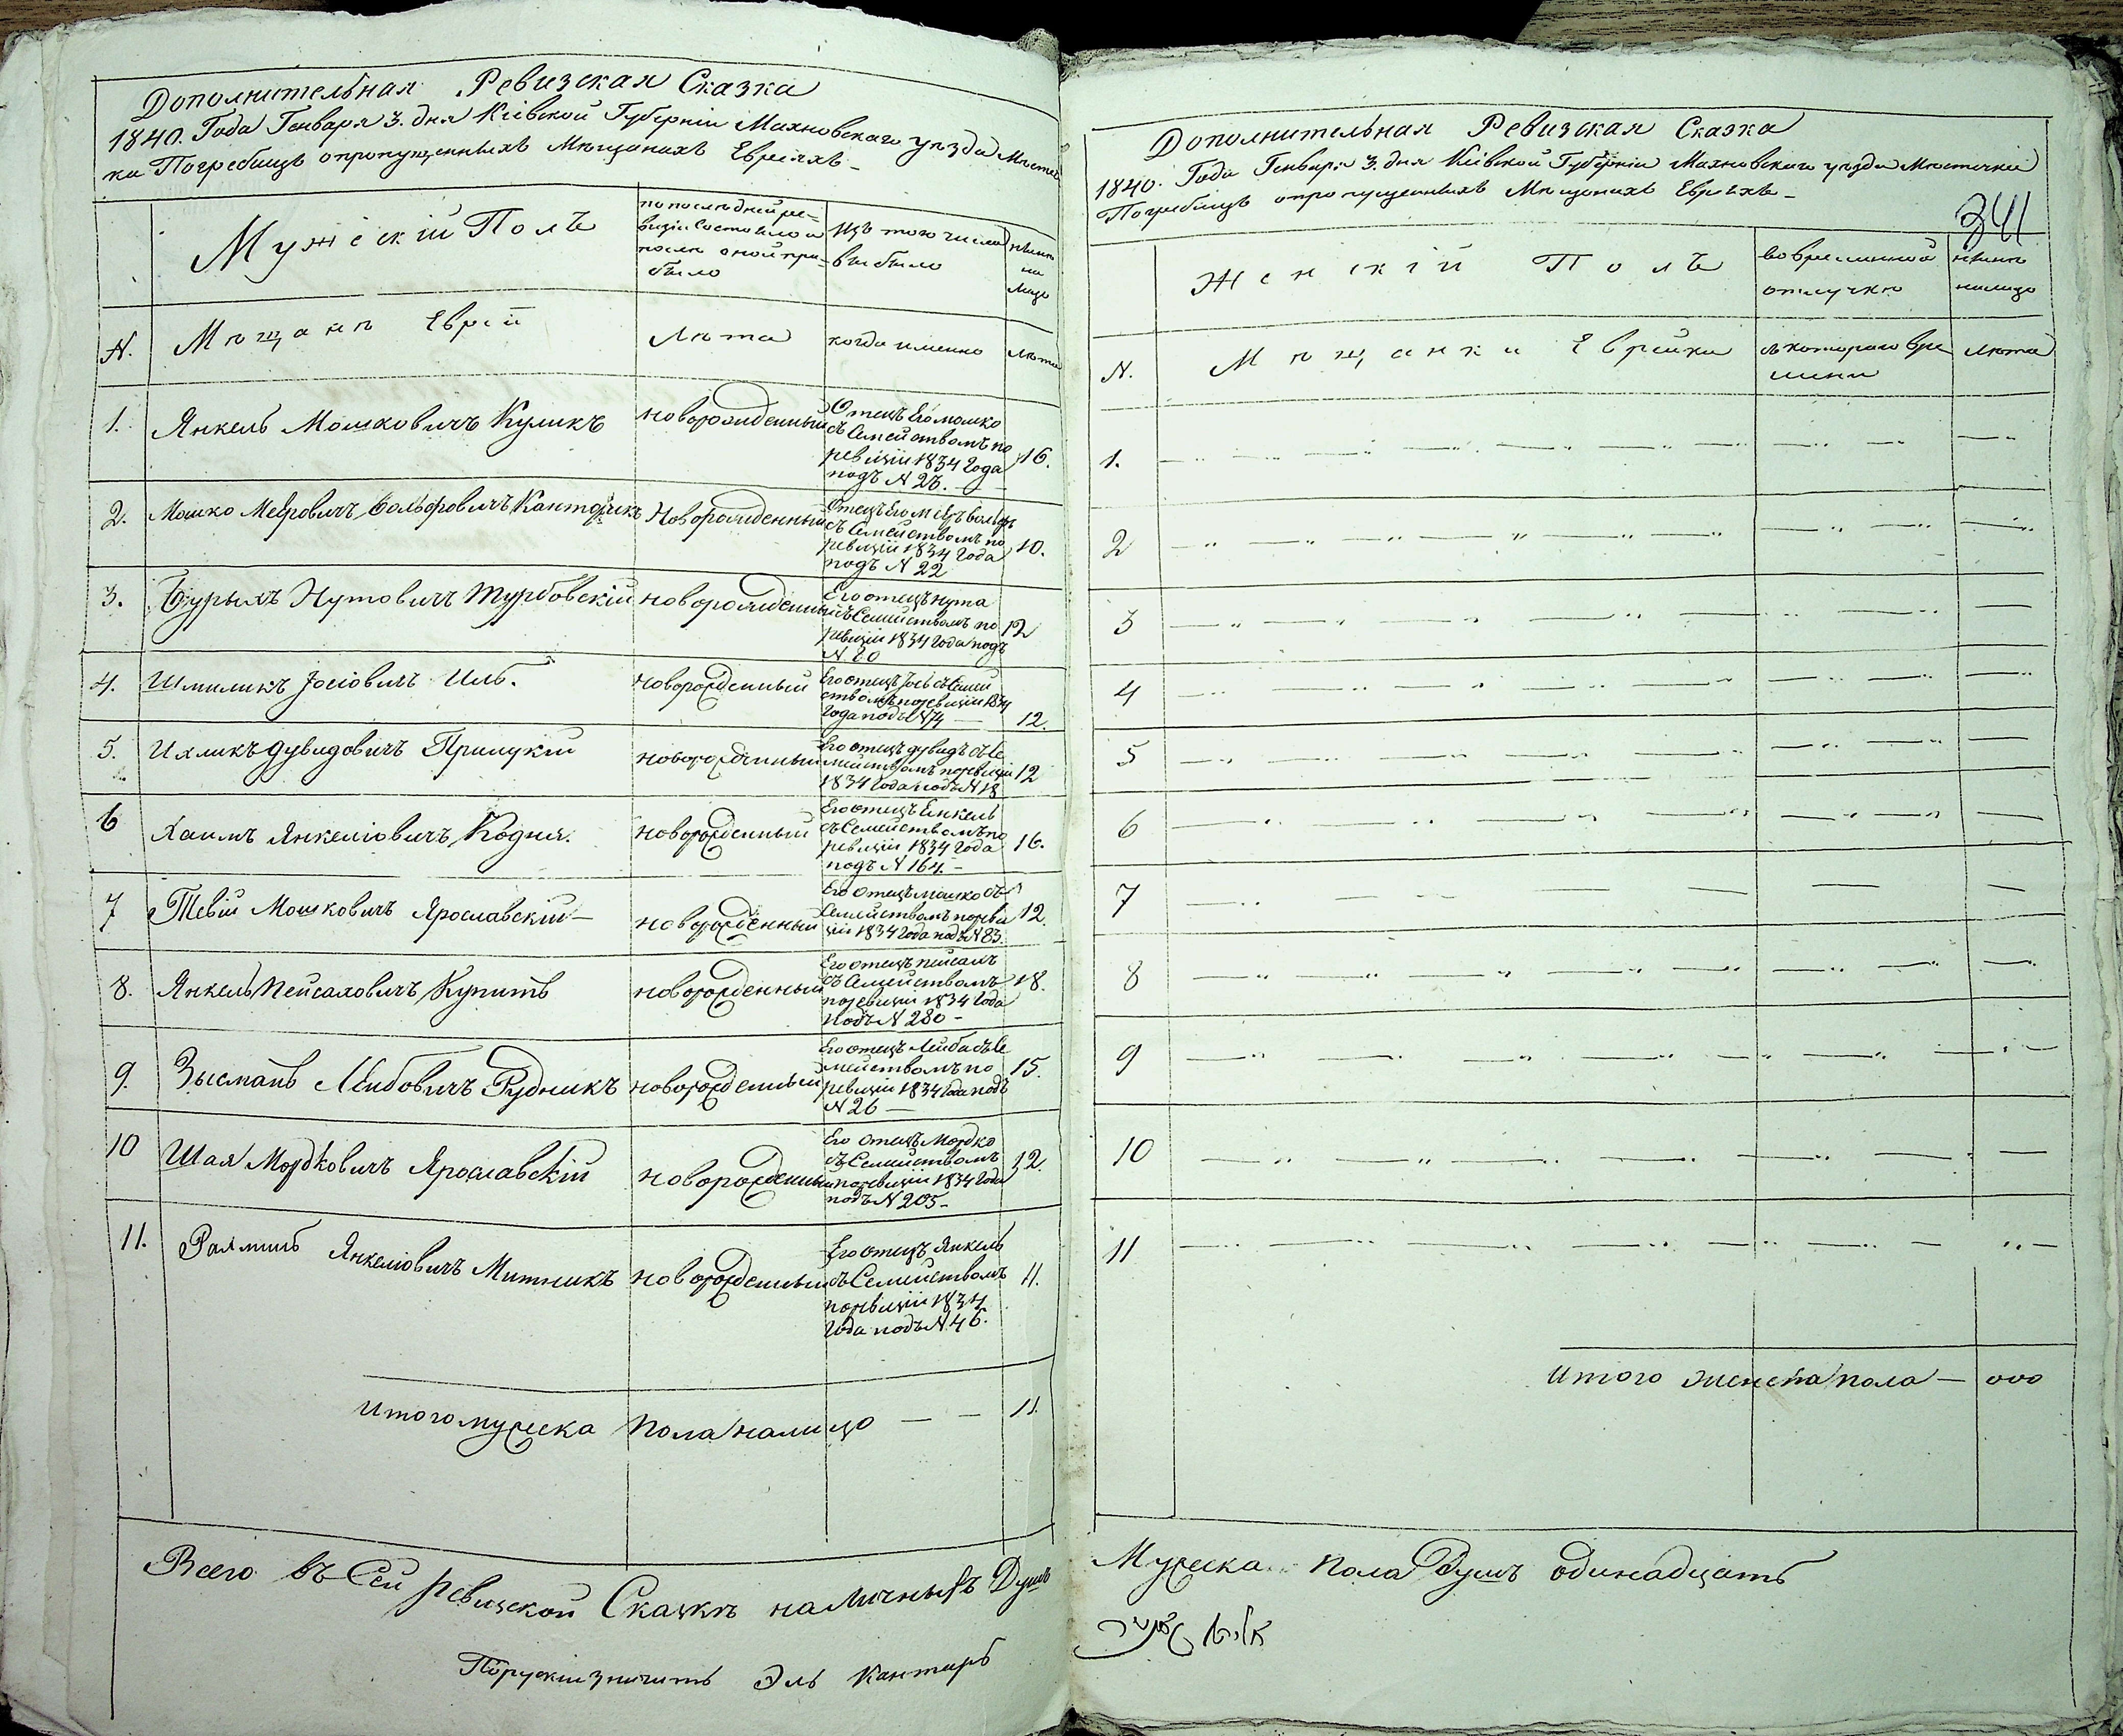 Дополнительная Ревизская Сказка
1840. Года Генваря 3. дня Кіевской Губерніи Махновскаго уѣзда Мѣстеч
ка Погребищъ опропущенныхъ Мѣщанихъ Евреяхъ
Мужескій Полъ
по последней ре-
визіи состояло и
после оной при-
было
Изъ того числа
выбыло
нынѣ
на
лицо
N.
Мѣщанѣ Евреи
Лѣта
когда именно
Лѣта
1.
Янкель Мошковичъ Куликъ
новорожденный
Отецъ Его мошко
съ Семействомъ по
ревизіи 1834 Года
подъ N 28.
16.
2.
Мошко Меeровичъ Вольфовичъ Канторикъ
Новорожденный
съ Семействомъ по
ревизіи 1834 Года
подъ N 22
10.
3.
Бурыхъ Нутовичъ Турбовскій
новорожденный
Его отецъ нута
съ Семействомъ по
ревизіи 1834 Года подъ
N 20
12
4.
Шмиликъ Іосіовичъ Иль.
новорожденный
Его отецъ Іось съ Семей
ствомъ по ревизіи 1834
Года подъ N 74
12.
5.
Ихликъ дувидовичъ Прилуцкій
новорожденный
Его отецъ дувидъ съ Се
мействомъ по ревизіи
1834 Года подъ N 18
12
6
Хаимъ Янкеліовичъ Кодня.
новорожденный
Его отецъ Енкель
съ Семействомъ по
ревизіи 1834 Года
подъ N 164.
16.
7
Тевій Мошковичъ Ярославскій
новорожденный
Его отецъ мошко съ
Семействомъ по реви
зіи 1834 Года подъ N 83.
12.
8.
Янкель Пейсаховичъ Купитъ
новорожденный
Его отецъ пейсахъ
съ Семействомъ
по ревизіи 1834 Года
подъ N 280
18.
9.
Зысманъ Лейбовичъ Рудникъ
новорожденный
Его отецъ Лейба съ Се
мействомъ по
ревизіи 1834 Года подъ
N 26
15.
10
Шая Мордковичъ Ярославскій
новорожденный
Его отецъ Мордко
съ Семействомъ
по ревизіи 1834 Года
подъ N 205
12.
11.
Янкеліовичъ Митникъ
новорожденный
Его отецъ Янкель
съ Семействомъ
по ревизіи 1834
Года подъ N 46.
11.
Итого мужеска пола налицо
11.
Всего въ Сей ревизской Сказкѣ наличныхъ Душъ
Порускій значитъ Эль Кантаръ
Дополнительная Ревизская Сказка
1840. Года Генваря 3. дня Кіевской Губерніи Махновскаго уѣзда Мѣстечка
Погребищъ опропущенныхъ Мѣщанихъ Евреяхъ
341
Женскій Полъ
во временной
отлучкѣ
нынѣ
налицо
N.
Мѣщанки Еврейки
съ котораго вре
мени
Лѣта
1.
2
3
4
5
6
7
8
9
10
11
Итого женска пола — 000
Мужеска пола Душъ одинадцать